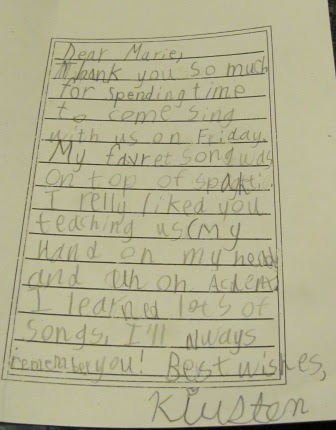 Dear Marie,
Thank you so much
for spending time
to come sing
with us on Friday.
My favret song was
On top of
I relly liked you
teaching us (My
Hand on my head
and uh oh
I learned lots of
songs. I'll always
remember you! Best wishes,